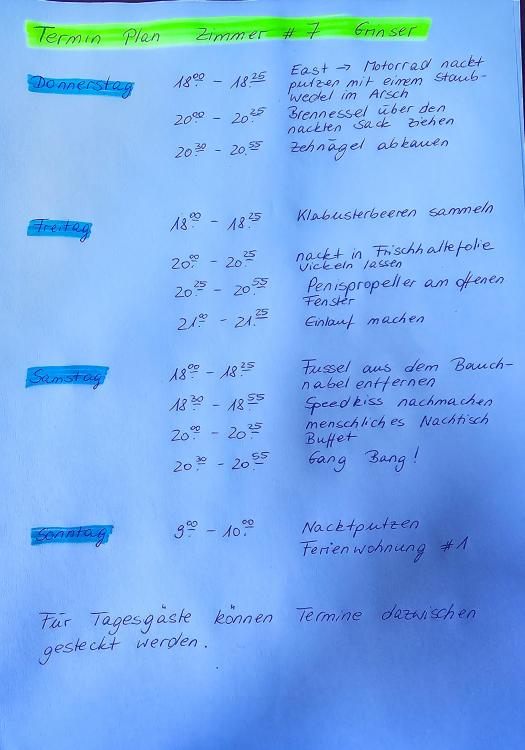 Termin Plan Zimmer # 7 Grinser
Donnerstag 18⁰⁰ - 18²⁵ East → Motorrad nackt
putzen mit einem Staub-
wedel im Arsch
20⁰⁰ - 20²⁵ Brennessel über den
nackten Sack ziehen
20³⁰ - 20⁵⁵ Zehnägel abkauen
Freitag 18⁰⁰ - 18²⁵ Klabusterbeeren sammeln
20⁰⁰ - 20²⁵ nackt in Frischhaltefolie
vickeln lassen
20²⁵ - 20⁵⁵ Penispropeller am offenen
Fenster
21⁰⁰ - 21²⁵ Einlauf machen
Samstag 18⁰⁰ - 18²⁵ Fussel aus dem Bauch-
nabel entfernen
18³⁰ - 18⁵⁵ Speedkiss nachmachen
20⁰⁰ - 20²⁵ menschliches Nachtisch
Buffet
20³⁰ - 20⁵⁵ Gang Bang!
Sonntag 9⁰⁰ - 10⁰⁰ Nacktputzen
Ferienwohnung #1
Für Tagesgäste können Termine dazwischen
gesteckt werden.